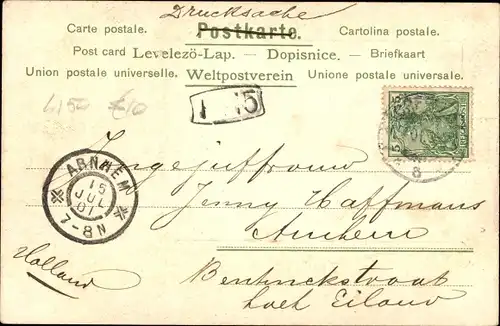 Drucksache
Carte postale. Postkarte. Cartolina postale.
Post card Levelezö-Lap. — Dopisnice. — Briefkaart
Union postale universelle. Weltpostverein Unione postale universale.
4150 £10
ARNHEM
15
JUL
01
7-8N
Jongejuffrouw
Jenny Haffmans
Arnhem
Bentinckstraat
hoek Eiland
Holland